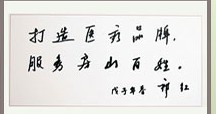 打造医疗品牌，
服务房山百姓。
戊子年春 祁红